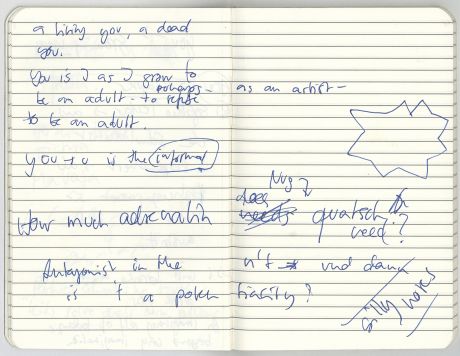 a living you, a dead
you.
You is I as I grow to
perhaps - as an artist -
be an adult - to refuse
to be an adult.
you to is the informal
Nug
How much adrenalin does quatsch
need?
Antagonist in the und dann
is 't a poten tiality?
silly notes